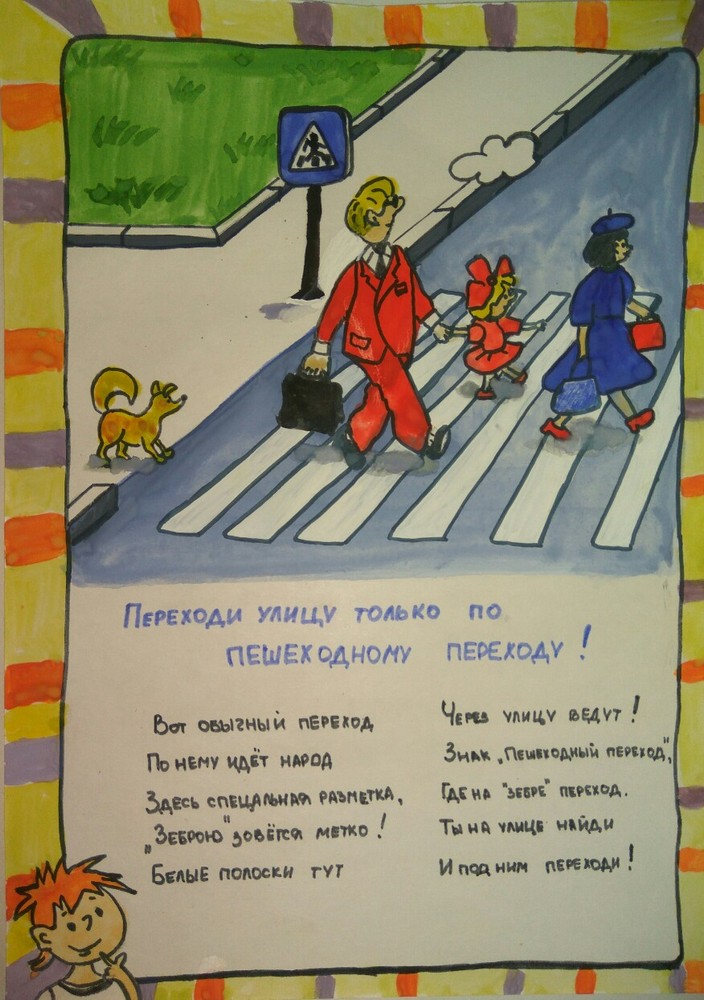 Переходи улицу только по
пешеходному переходу!
Вот обычный переход
По нему идёт народ
Здесь спецальная разметка,
„Зеброю" зовётся метко!
Белые полоски тут
Через улицу ведут!
Знак „Пешеходный переход",
Где на "зебре" переход.
Ты на улице найди
И под ним переходи!